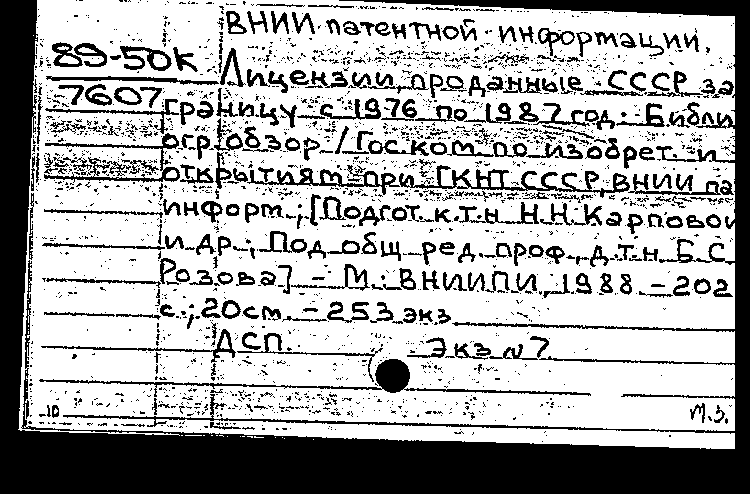 ВНИИ патентной информации.
89-50К
Лицензии, проданные СССР за
7607
границу с 1976 по 1987 год: Библи
огр. обзор / Гос. ком. по изобрет. и
открытиям при ГКНТ СССР, ВНИИ па
информ.; [Подгот. к.т.н. Н.Н. Карповой
и др.; Под общ. ред. проф., д.т.н. Б.С.
Розова] - М.: ВНИИПИ, 1988. - 202
с.; 20см. - 253 экз
ДСП. Экз №7.
10 М.З.